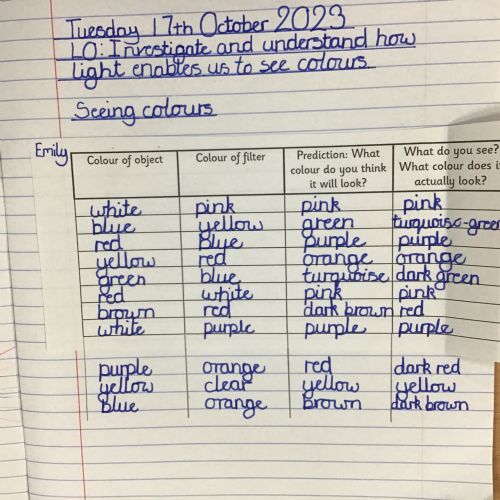 Tuesday 17th October 2023
LO: Investigate and understand how
light enables us to see colours
Seeing colours
Emily
Colour of object Colour of filter Prediction: What colour do you think it will look? What do you see? What colour does it actually look?
white pink pink pink
blue yellow green turquoise-green
red Blue purple purple
yellow red orange orange
green blue turquoise dark green
red white pink pink
brown red dark brown red
white purple purple purple
purple orange red dark red
yellow clear yellow yellow
blue orange brown dark brown